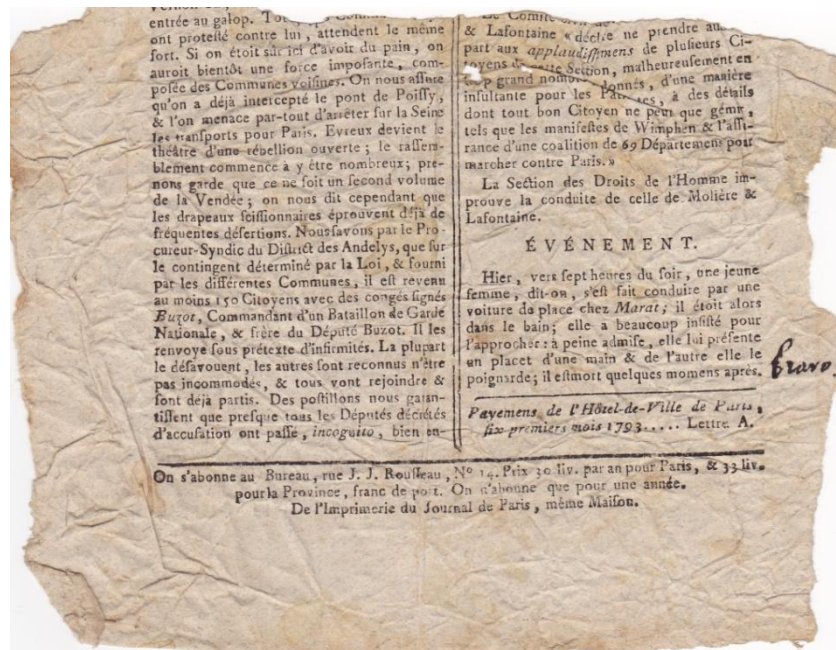 entrée au galop.
ont proteſté contre lui, attendent le même
ſort. Si on étoit sûr ici d'avoir du pain, on
auroit bientôt une force impoſante, com-
poſée des Communes voiſines. On nous aſſure
qu'on a déjà intercepté le pont de Poiſſy,
& l'on menace par-tout d'arrêter ſur la Seine
les tranſports pour Paris. Evreux devient le
théâtre d'une rébellion ouverte; le raſſem-
blement commence à y être nombreux; pre-
nons garde que ce ne ſoit un ſecond volume
de la Vendée; on nous dit cependant que
les drapeaux ſciſſionnaires éprouvent déjà de
fréquentes déſertions. Nous ſavons par le Pro-
cureur-Syndic du Diſtrict des Andelys, que ſur
le contingent déterminé par la Loi, & fourni
par les différentes Communes, il eſt revenu
au moins 150 Citoyens avec des congés ſignés
Buzot, Commandant d'un Bataillon de Garde
Nationale, & frère du Député Buzot. Il les
renvoye ſous prétexte d'infirmités. La plupart
le déſavouent, les autres ſont reconnus n'être
pas incommodés, & tous vont rejoindre &
ſont déjà partis. Des poſtillons nous garan-
tiſſent que preſque tous les Députés décrétés
d'accuſation ont paſſé, incognito, bien en-
Le Comité
& Lafontaine « déclare ne prendre
part aux applaudiſſemens de pluſieurs Ci-
toyens de cette Section, malheureuſement en
trop grand nombre, donnés, d'une manière
inſultante pour les Patriotes, à des détails
dont tout bon Citoyen ne peut que gémir,
tels que les manifeſtes de Wimphen & l'aſſu-
rance d'une coalition de 69 Départemens pour
marcher contre Paris. »
La Section des Droits de l'Homme im-
prouve la conduite de celle de Molière &
Lafontaine.
ÉVÉNEMENT.
Hier, vers ſept heures du ſoir, une jeune
femme, dit-on, s'eſt fait conduire par une
voiture de place chez Marat; il étoit alors
dans le bain; elle a beaucoup inſiſté pour
l'approcher: à peine admiſe, elle lui préſente
un placet d'une main & de l'autre elle le
poignarde; il eſt mort quelques momens après.
bravo
Payemens de l'Hôtel-de-Ville de Paris,
ſix premiers mois 1793..... Lettre A.
On s'abonne au Bureau, rue J. J. Rouſſeau, N° 14. Prix 30 liv. par an pour Paris, & 33 liv.
pour la Province, franc de port. On n'abonne que pour une année.
De l'Imprimerie du Journal de Paris, même Maiſon.